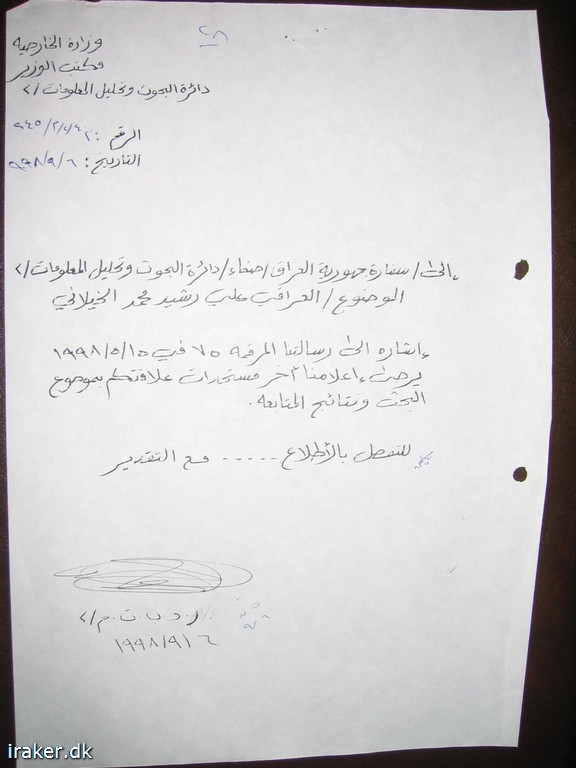 ٢٨
وزارة الخارجيه
مكتب الوزير
دائرة البحوث وتحليل المعلومات/>
الرقم :
التاريخ : ٩٩٨/٩/٦
إلى/ سفارة جمهورية العراق/صنعاء/دائرة البحوث وتحليل المعلومات/>
الموضوع/ العراقي علي رشيد محمد
إشاره الى رسالتنا المرقمه ٧٥ في ١٩٩٨/٥/١٥
يرجى إعلامنا آخر مستجدات علاقتكم بموضوع
البحث ونتائج المتابعه.
للتفضل بالأطلاع ..... مع التقدير
ر.د.ب.ت.م/>
١٩٩٨/٩/٦
iraker.dk